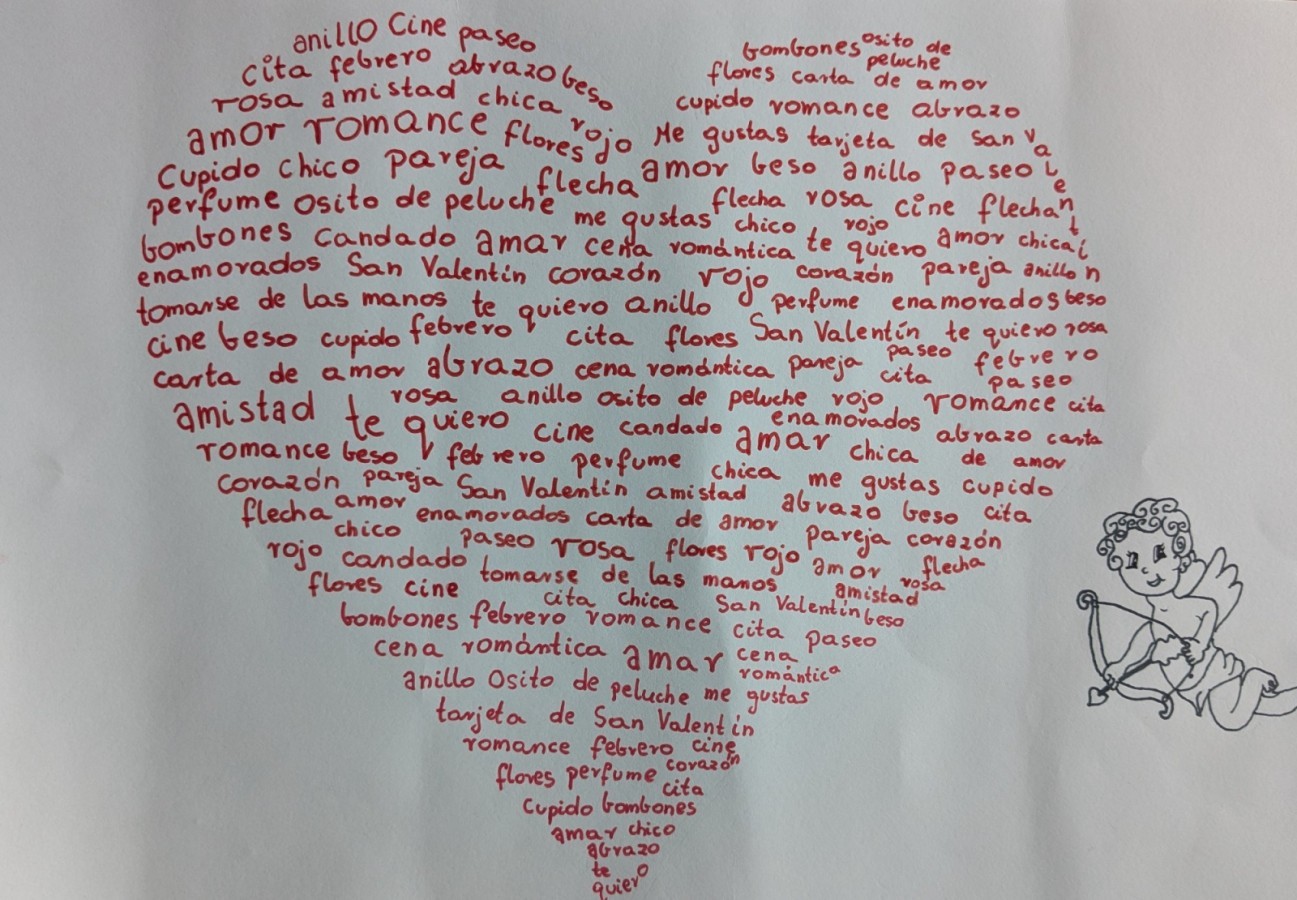 anillo Cine paseo
cita febrero abrazo beso
rosa amistad chica rojo
amor romance flores
Cupido chico pareja flecha
perfume osito de peluche me gustas
bombones candado amar cena romántica te quiero amor chica
enamorados San Valentín corazón rojo corazón pareja anillo
tomarse de las manos te quiero anillo perfume enamorados beso
cine beso cupido febrero cita flores San Valentín te quiero rosa
carta de amor abrazo cena romántica pareja paseo cita febrero paseo
bombones osito de peluche
flores carta de amor
cupido romance abrazo
Me gustas tarjeta de San Valentín
amor beso anillo paseo
flecha rosa cine flecha
chico rojo
rosa anillo osito de peluche rojo romance cita
amistad te quiero cine candado enamorados abrazo carta de amor
romance beso febrero perfume amar chica
corazón pareja San Valentín amistad chica me gustas cupido
flecha amor enamorados carta de amor abrazo beso cita
chico paseo rosa flores rojo pareja corazón
rojo candado tomarse de las manos amor flecha
flores cine cita chica San Valentín amistad rosa beso
bombones febrero romance cita paseo
cena romántica amar cena romántica
anillo Osito de peluche me gustas
tarjeta de San Valentín
romance febrero cine
flores perfume corazón
cita
Cupido bombones
amar chico
abrazo
te
quiero